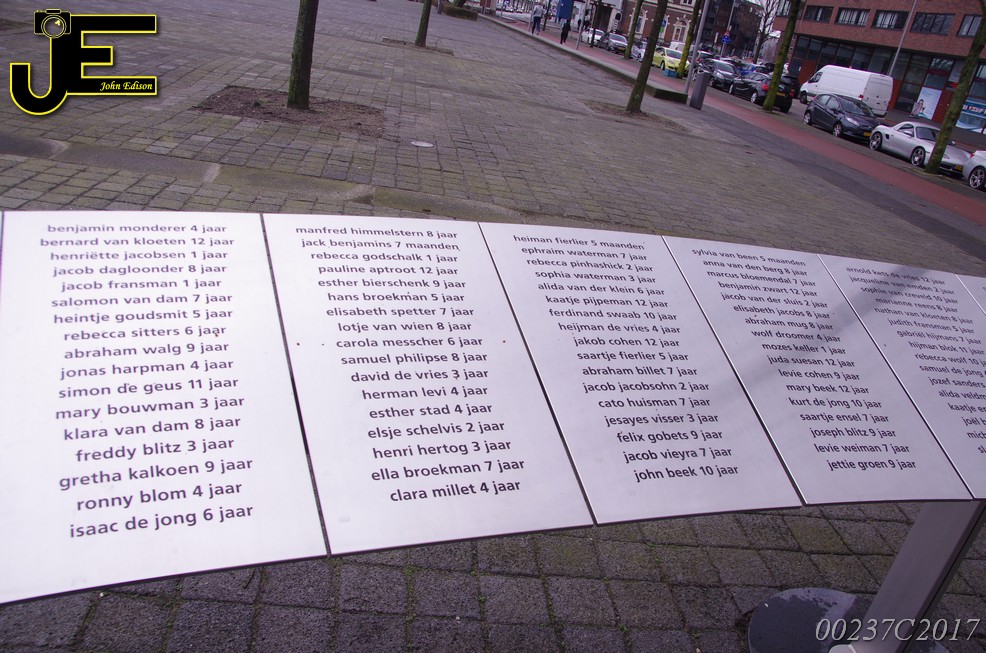 JE
John Edison
benjamin monderer 4 jaar
bernard van kloeten 12 jaar
henriëtte jacobsen 1 jaar
jacob dagloonder 8 jaar
jacob fransman 1 jaar
salomon van dam 7 jaar
heintje goudsmit 5 jaar
rebecca sitters 6 jaar
abraham walg 9 jaar
jonas harpman 4 jaar
simon de geus 11 jaar
mary bouwman 3 jaar
klara van dam 8 jaar
freddy blitz 3 jaar
gretha kalkoen 9 jaar
ronny blom 4 jaar
isaac de jong 6 jaar
manfred himmelstern 8 jaar
jack benjamins 7 maanden
rebecca godschalk 1 jaar
pauline aptroot 12 jaar
esther bierschenk 9 jaar
hans broekman 5 jaar
elisabeth spetter 7 jaar
lotje van wien 8 jaar
carola messcher 6 jaar
samuel philipse 8 jaar
david de vries 3 jaar
herman levi 4 jaar
esther stad 4 jaar
elsje schelvis 2 jaar
henri hertog 3 jaar
ella broekman 7 jaar
clara millet 4 jaar
heiman fierlier 5 maanden
ephraim waterman 7 jaar
rebecca pinhashick 2 jaar
sophia waterman 3 jaar
alida van der klein 6 jaar
kaatje pijpeman 12 jaar
ferdinand swaab 10 jaar
heijman de vries 4 jaar
jakob cohen 12 jaar
saartje fierlier 5 jaar
abraham billet 7 jaar
jacob jacobsohn 2 jaar
cato huisman 7 jaar
jesayes visser 3 jaar
felix gobets 9 jaar
jacob vieyra 7 jaar
john beek 10 jaar
sylvia van been 5 maanden
anna van den berg 8 jaar
marcus bloemendal 7 jaar
benjamin zwart 12 jaar
jacob van der sluis 2 jaar
elisabeth jacobs 8 jaar
abraham mug 8 jaar
wolf droomer 4 jaar
mozes keller 1 jaar
juda suesan 12 jaar
levie cohen 9 jaar
mary beek 12 jaar
kurt de jong 10 jaar
saartje ensel 7 jaar
joseph blitz 9 jaar
levie weiman 7 jaar
jettie groen 9 jaar
arnold kats de vries 12 jaar
jacqueline van emden 2 jaar
sophia van creveld 10 jaar
marianna reens 8 jaar
nathan van kloeten 8 jaar
judith fransman 5 jaar
gabriël hijmans 7 jaar
hijman blok 11 jaar
rebecca wolf 10
samuel de jong
jozef sanders
alida
kaatje
joël
00237C2017